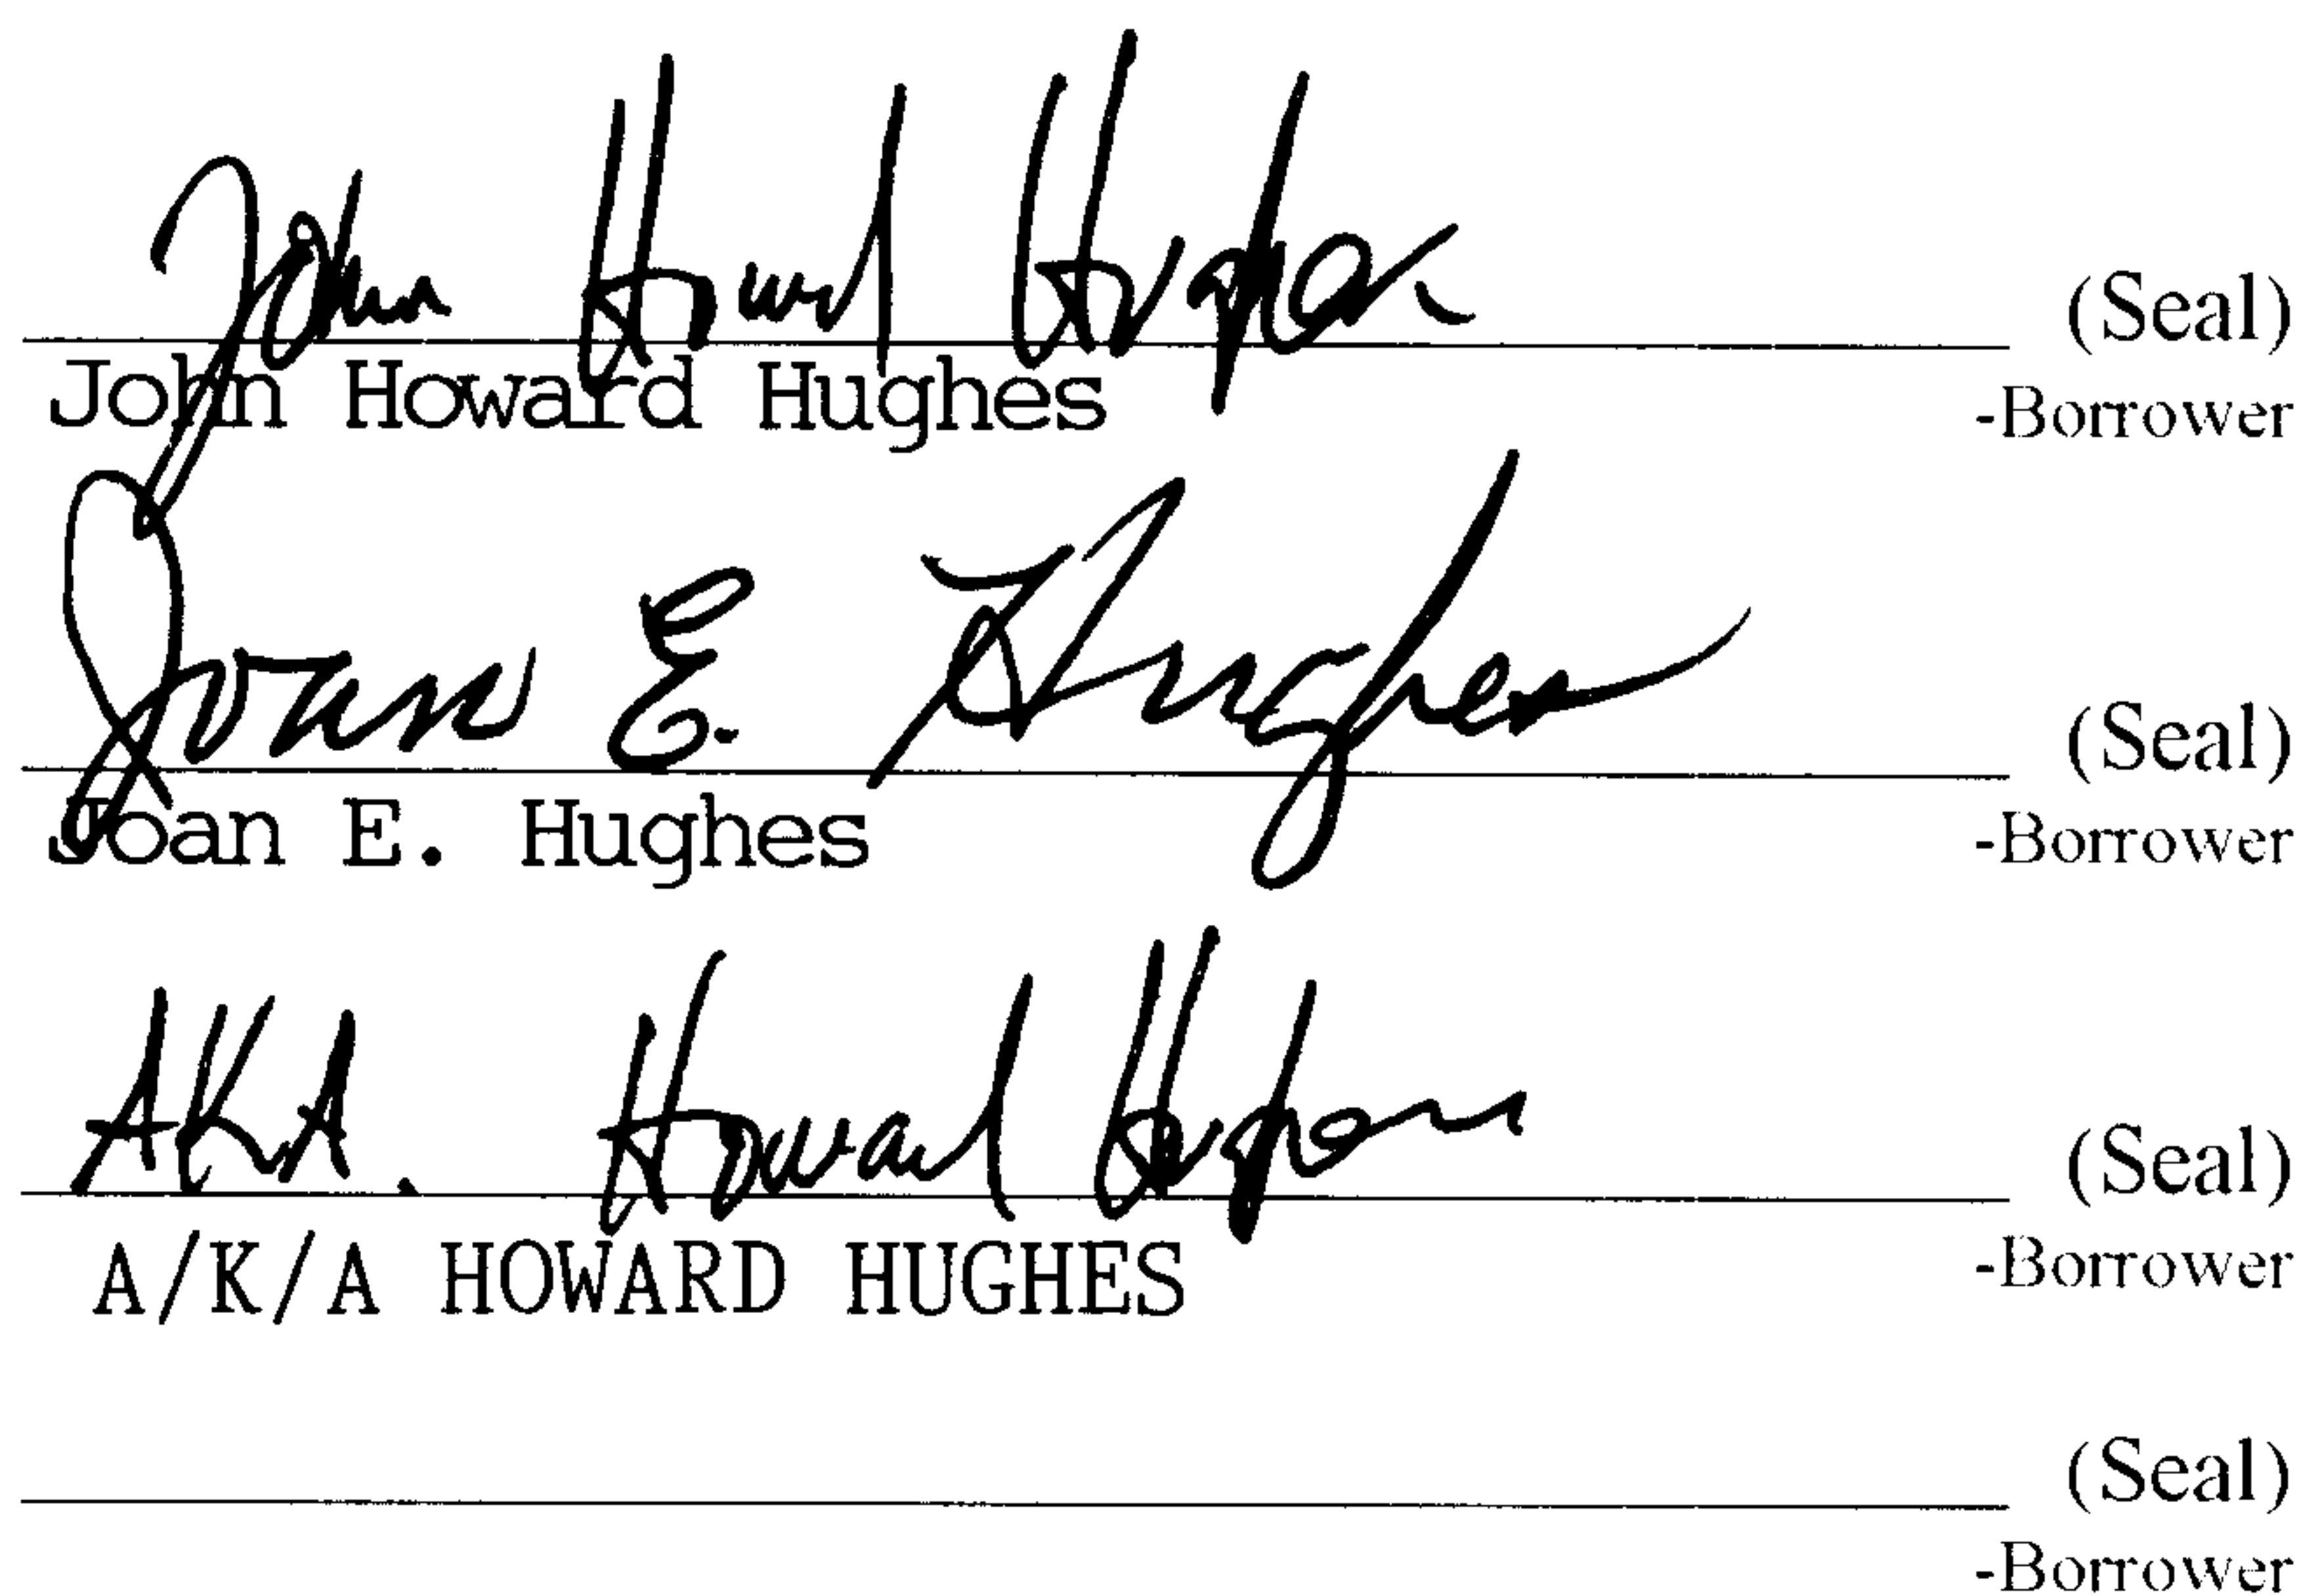 John Howard Hughes (Seal)
John Howard Hughes -Borrower
Joan E. Hughes (Seal)
Joan E. Hughes -Borrower
AKA. Howard Hughes (Seal)
A/K/A HOWARD HUGHES -Borrower
(Seal)
-Borrower